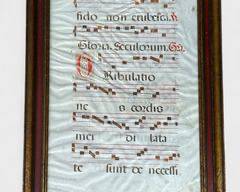 fido non erubescã.
Gloria. Seculorum.
Ribulatio
ne s cordis
mei di lata
te sunt de necessi